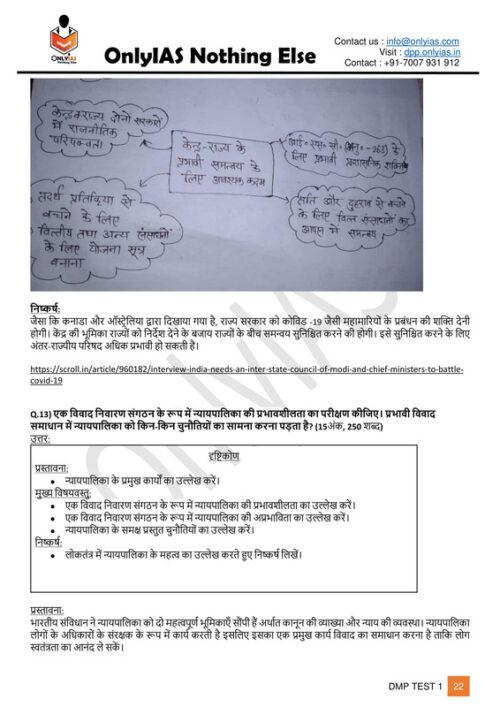 ONLYIAS
Nothing Else
OnlyIAS Nothing Else
Contact us : info@onlyias.com
Visit : dpp.onlyias.in
Contact : +91-7007 931 912
केन्द्र व राज्य दोनों सरकारों
में राजनीतिक
परिपक्वता
केन्द्र-राज्य के
प्रभावी समन्वय के
लिए आवश्यक कदम
आई० एस० सी० (अनु० - 263) के
लिए प्रभावी प्रशासनिक
तदर्थ प्रतिक्रिया से
बचाने के लिए
वित्तीय तथा अन्य संसाधनों
के लिए योजना सूत्र
बनाना
क्षति और दुहराव से बचने
के लिए वित्त संसाधनों का
आपस में समन्वय
निष्कर्ष:
जैसा कि कनाडा और ऑस्ट्रेलिया द्वारा दिखाया गया है, राज्य सरकार को कोविड -19 जैसी महामारियों के प्रबंधन की शक्ति देनी
होगी। केंद्र की भूमिका राज्यों को निर्देश देने के बजाय राज्यों के बीच समन्वय सुनिश्चित करने की होगी। इसे सुनिश्चित करने के लिए
अंतर-राज्यीय परिषद अधिक प्रभावी हो सकती है।
https://scroll.in/article/960182/interview-india-needs-an-inter-state-council-of-modi-and-chief-ministers-to-battle-
covid-19
Q.13) एक विवाद निवारण संगठन के रूप में न्यायपालिका की प्रभावशीलता का परीक्षण कीजिए। प्रभावी विवाद
समाधान में न्यायपालिका को किन-किन चुनौतियों का सामना करना पड़ता है? (15अंक, 250 शब्द)
उत्तर:
दृष्टिकोण
प्रस्तावना:
• न्यायपालिका के प्रमुख कार्यों का उल्लेख करें।
मुख्य विषयवस्तु:
• एक विवाद निवारण संगठन के रूप में न्यायपालिका की प्रभावशीलता का उल्लेख करें।
• एक विवाद निवारण संगठन के रूप में न्यायपालिका की अप्रभाविता का उल्लेख करें।
• न्यायपालिका के समक्ष प्रस्तुत चुनौतियों का उल्लेख करें।
निष्कर्ष:
• लोकतंत्र में न्यायपालिका के महत्व का उल्लेख करते हुए निष्कर्ष लिखें।
प्रस्तावना:
भारतीय संविधान ने न्यायपालिका को दो महत्वपूर्ण भूमिकाएँ सौंपी हैं अर्थात कानून की व्याख्या और न्याय की व्यवस्था। न्यायपालिका
लोगों के अधिकारों के संरक्षक के रूप में कार्य करती है इसलिए इसका एक प्रमुख कार्य विवाद का समाधान करना है ताकि लोग
स्वतंत्रता का आनंद ले सकें।
DMP TEST 1 22